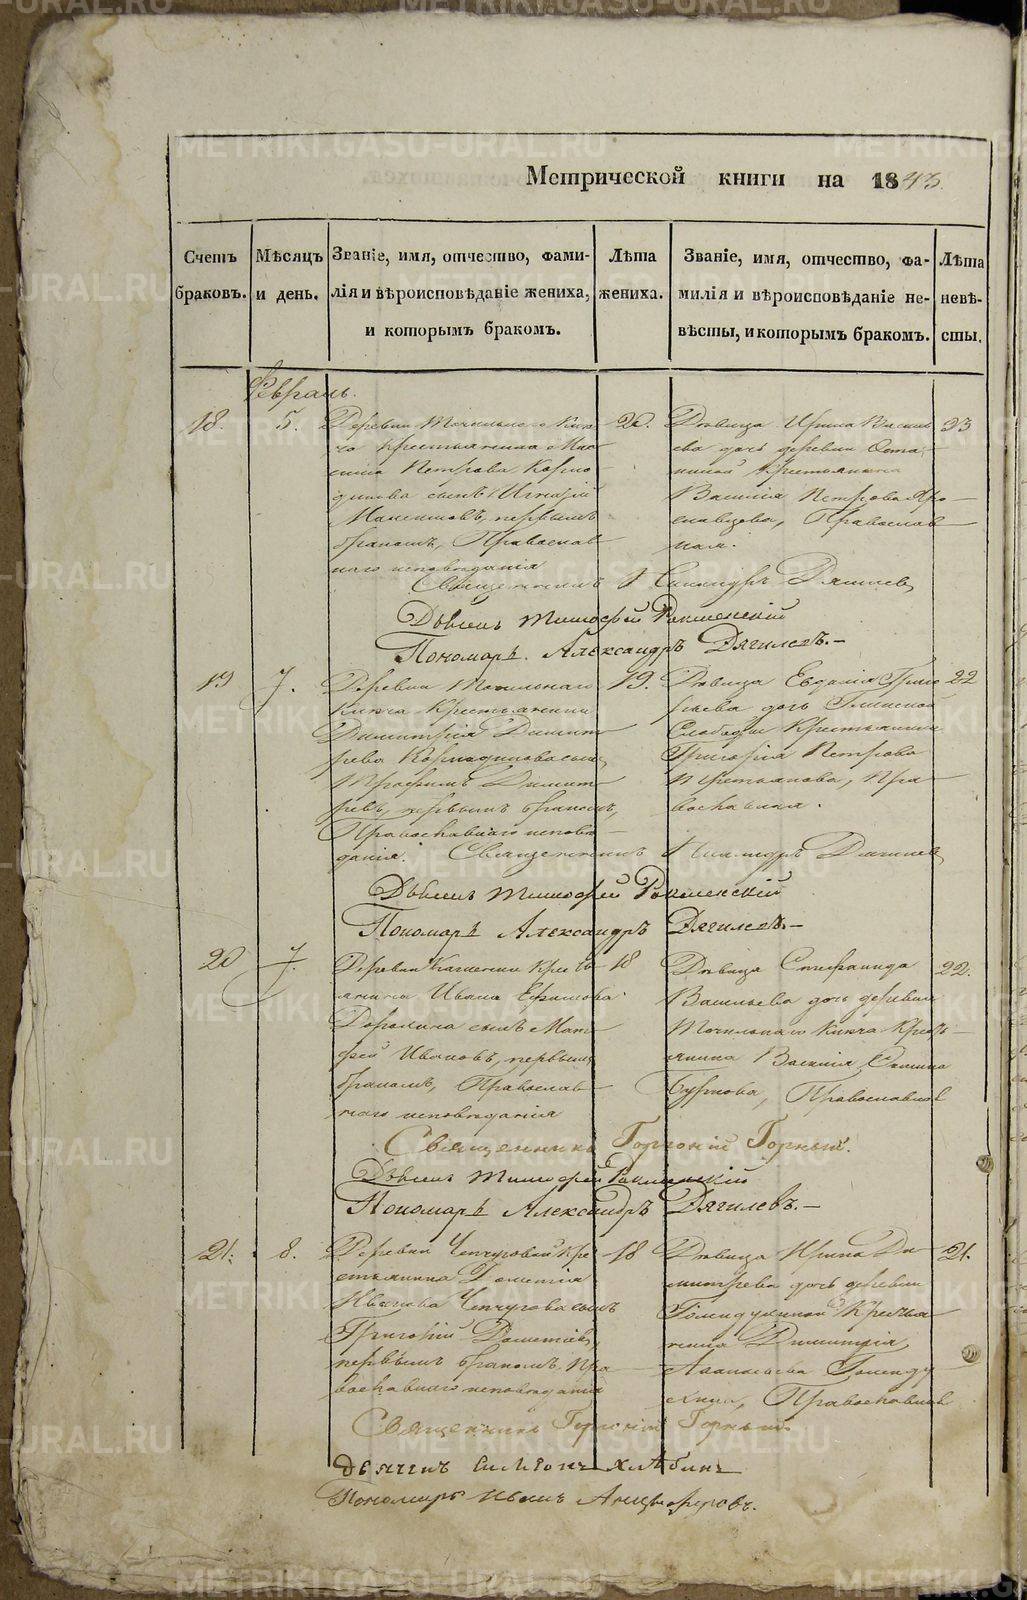 Метрической книги на 1843.
Счетъ браковъ.
Мѣсяцъ и день.
Званіе, имя, отчество, фамилія и вѣроисповѣданіе жениха, и которымъ бракомъ.
Лѣта жениха.
Званіе, имя, отчество, фамилія и вѣроисповѣданіе невѣсты, и которымъ бракомъ.
Лѣта невѣсты.
Февраль.
18. 5.
Деревни Точильнаго Клю
ча крестьянина Мак
сима Петрова
сынъ Игнатій
Максимовъ, первымъ
бракомъ, Православ
наго исповѣданія
Дѣвица Ирина Василь
ева дочь деревни
крестьянина
Василія Петрова Яро
славцова, Православ
ная.
23
Священникъ Александръ Дягилевъ
Дьячекъ Тимофей
Пономарь Александръ Дягилевъ.
19 7.
Деревни Точильнаго
Ключа Крестьянина
Димитрія Димит
ріева сынъ
Трофимъ Димит
ріевъ, первымъ бракомъ,
Православнаго исповѣ
данія.
19.
Дѣвица Евдокія Григо
рьева дочь Глинской
Слободы Крестьянина
Григорія Петрова
Пра
вославная.
22
Священникъ Александръ Дягилевъ
Дьячекъ Тимофей
Пономарь Александръ Дягилевъ.
20 7.
Деревни Каменки Кресть
янина Ивана Ефимова
сынъ Мат
фей Ивановъ, первымъ
бракомъ, Православ
наго исповѣданія
18
Дѣвица Стефанида
Васильева дочь деревни
Точильнаго Ключа Кресть
янина Василія
Православной
22.
Священникъ Горгоній Горный.
Дьячекъ Тимофей
Пономарь Александръ Дягилевъ.
21. 8.
Деревни Чепчуговой Кре
стьянина Дометія
Иванова Чепчугова сынъ
Григорій Дометіевъ,
первымъ бракомъ, Пра
вославнаго исповѣданія
18
Дѣвица Ирина Ди
митріева дочь деревни
Голендухиной Крестья
нина Димитрія
Голенду
хина, Православной
21.
Священникъ Горгоній Горный
Дьячекъ Симеонъ Хлѣбинъ
Пономарь Иванъ Анцыферовъ.
METRIKI.GASO-URAL.RU